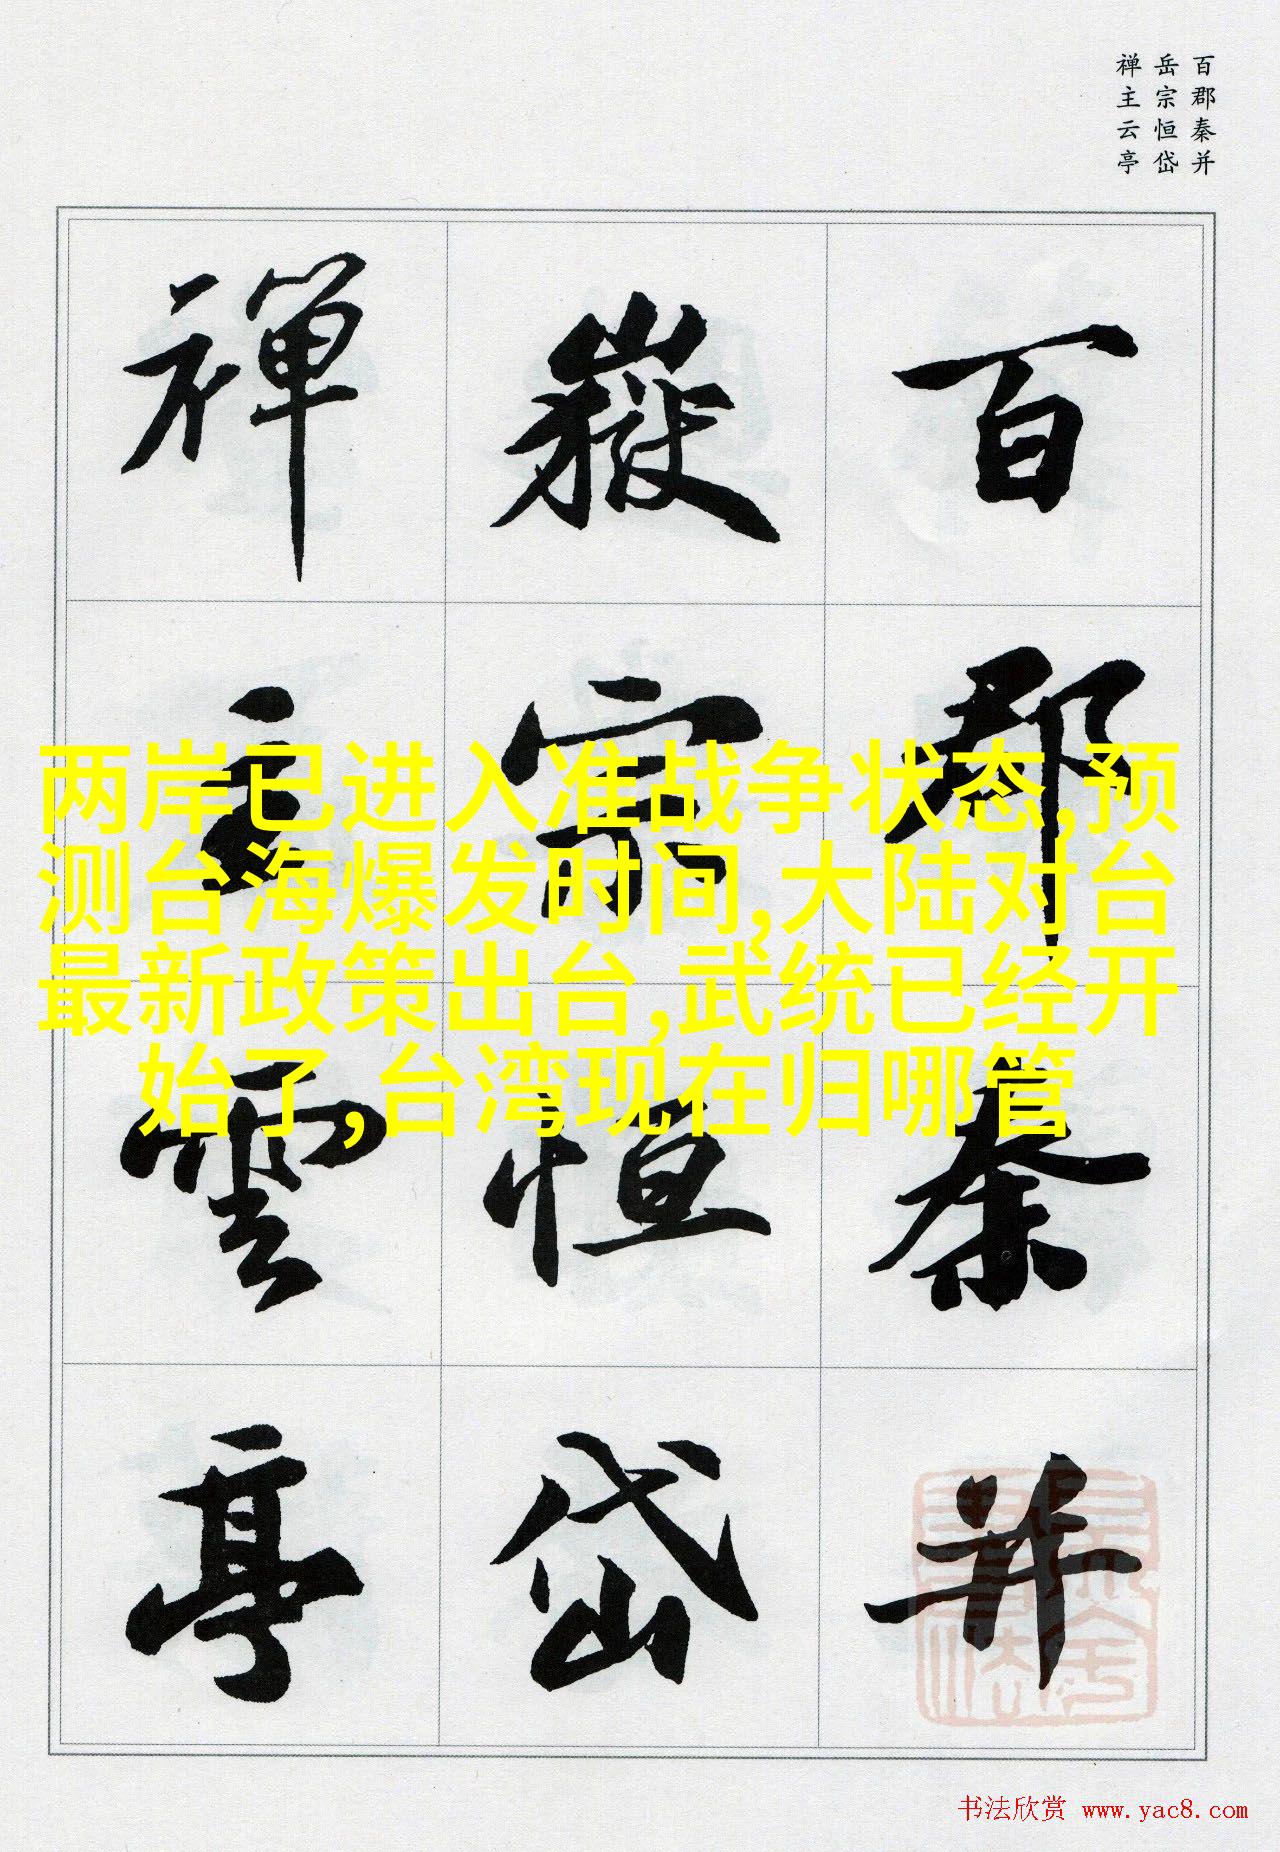 百郡秦并
岳宗恒岱
禅主云亭
百郡秦并
嶽宗恒岱
禅主雲亭
两岸已进入准战争状态,预
测台海爆发时间,大陆对台
最新政策出台,武统已经开
始了,台湾现在归哪管
书法欣赏 www.yac8.com